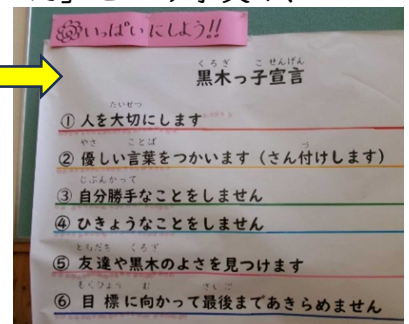 いっぱいにしよう!!
くろぎ こ せんげん
黒木っ子宣言
たいせつ
① 人を大切にします
やさ ことば づ
② 優しい言葉をつかいます（さん付けします）
じぶんかって
③ 自分勝手なことをしません
④ ひきょうなことをしません
ともだち くろぎ
⑤ 友達や黒木のよさを見つけます
もくひょう む さいご
⑥ 目標に向かって最後まであきらめません